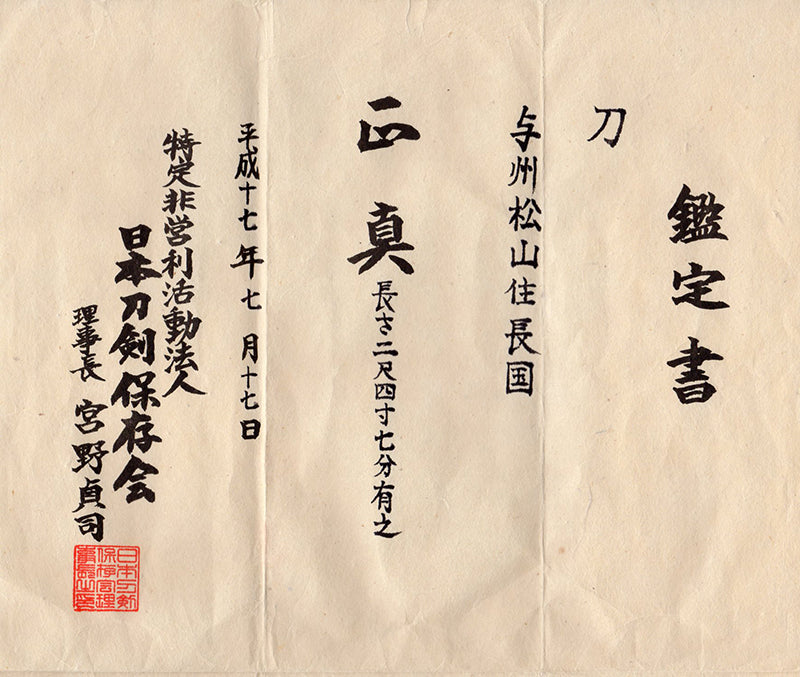 鑑定書
刀
与州松山住長国
正真
長さ二尺四寸七分有之
平成十七年七月十七日
特定非営利活動法人
日本刀剣保存会
理事長 宮野貞司
日本刀剣
保存会理
事長之印